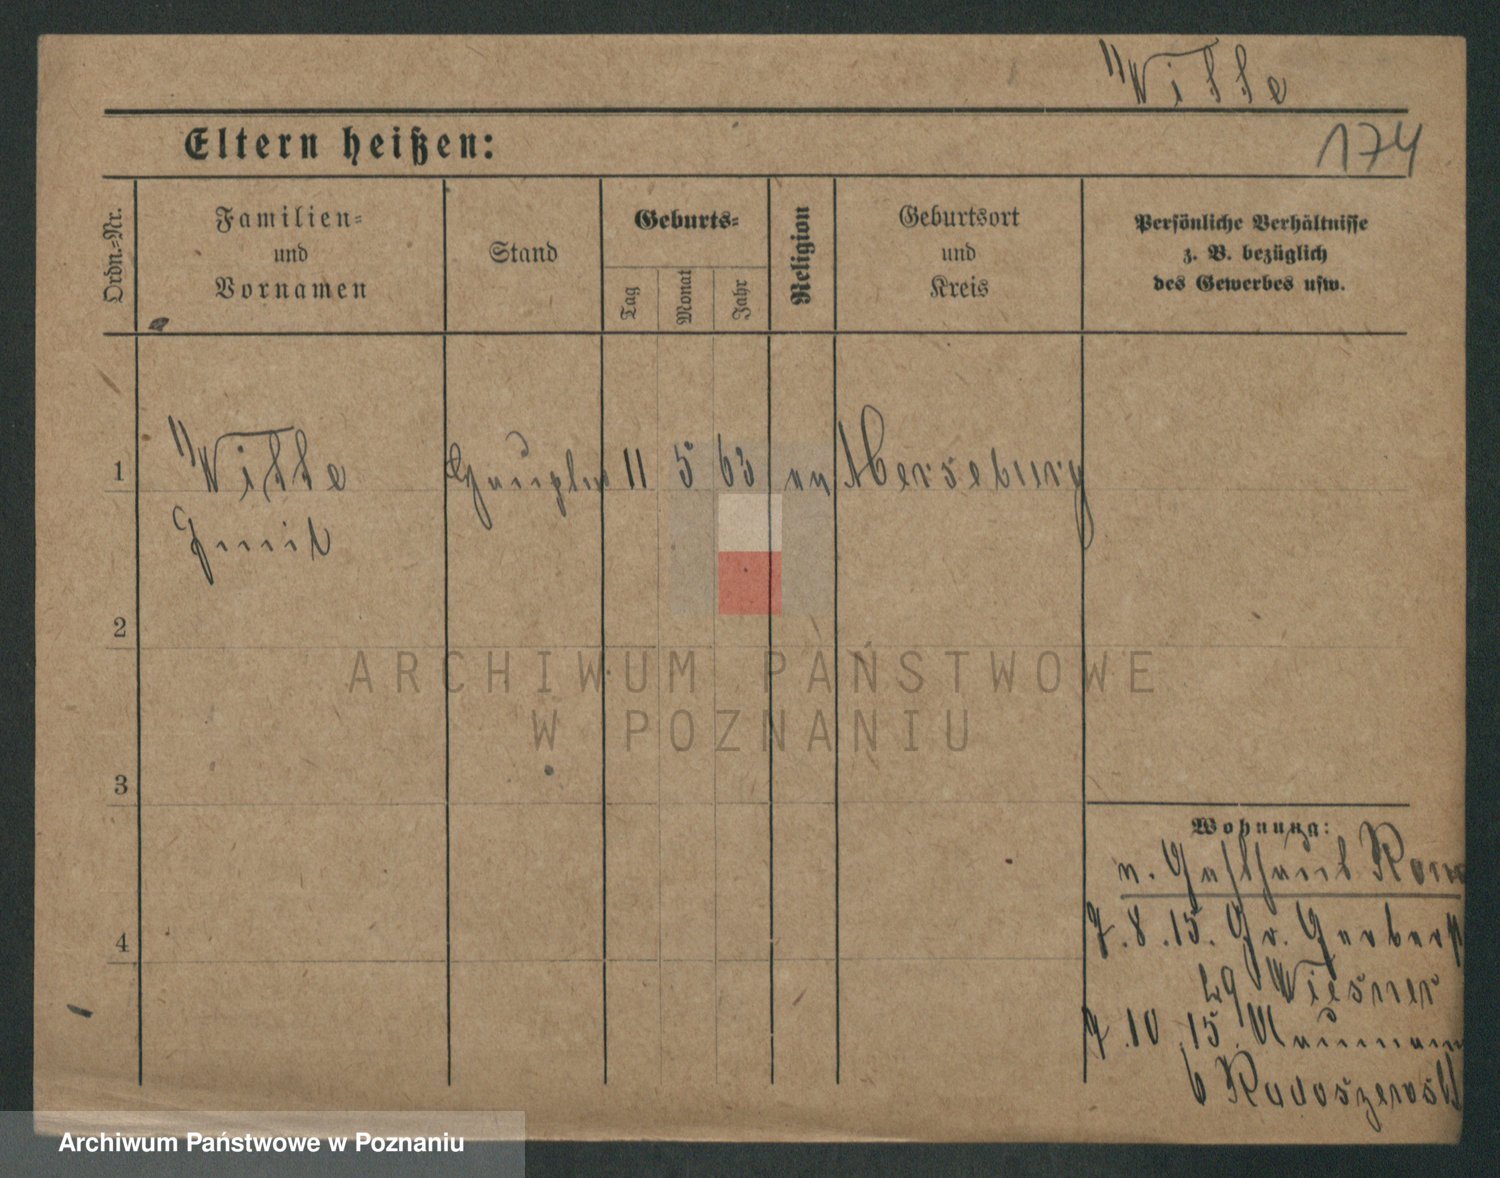 Witte
174
Eltern heißen:
Ordn.-Nr.
Familien-
und
Vornamen
Stand
Geburts-
Tag
Monat
Jahr
Religion
Geburtsort
und
Kreis
Persönliche Verhältnisse
z. B. bezüglich
des Gewerbes usw.
1 Witte 11 5 63 ev Merseburg
2
3
4
Wohnung:
n. Gasthaus
7.8.15. Gr. Gerberst
Wiesner
7.10.15. Naumann
6
ARCHIWUM PAŃSTWOWE
W POZNANIU
Archiwum Państwowe w Poznaniu